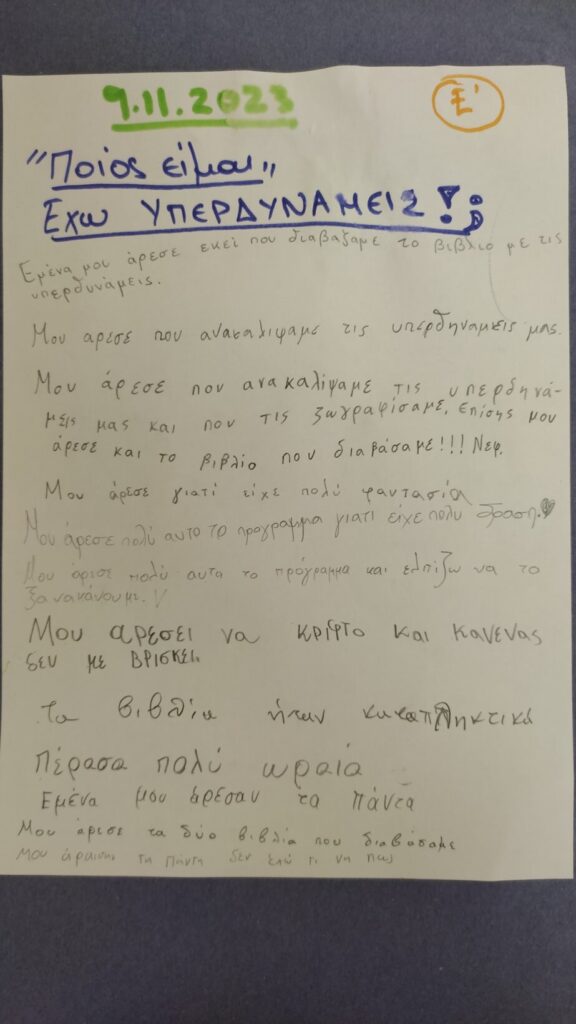 9.11.2023
Ε'
"Ποίος είμαι"
Έχω ΥΠΕΡΔΥΝΑΜΕΙΣ!;
Εμένα μου άρεσε εκεί που διαβάζαμε το βιβλίο με τις
υπερδυνάμεις.
Μου αρεσε που ανακαλιψαμε τις υπερδηναμεις μας.
Μου άρεσε που ανακαλίψαμε τις υπερδηνά-
μεις μας και που τις ζωγραφίσαμε, επίσης μου
άρεσε και το βιβλίο που διαβάσαμε!!! Νεφ.
Μου άρεσε γιατί είχε πολύ φαντασία
Μου άρεσε πολύ αυτο το προγραμμα γιατι είχε πολυ δραση.
Μου άρεσε πολύ αυτο το πρόγραμμα και ελπίζω να το
ξανακάνουμε.
Μου αρεσει να κρίφτο και κανενας
δεν με ΒΡΙΣΚΕΙ.
Τα βιβλία ήταν καταπληκτικά
Πέρασα πολύ ωραία
Εμένα μου άρεσαν τα πάντα
Μου άρεσε τα δύο βιβλία που διαβάσαμε
Μου τα πάντα δεν έχω τι να πως